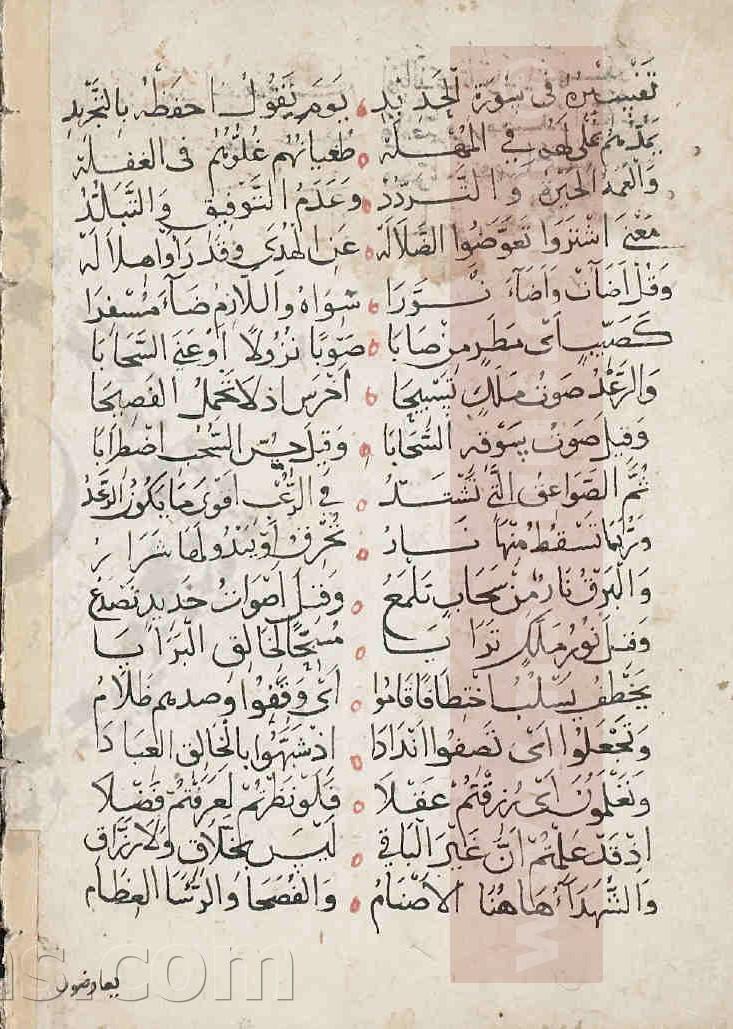 تفسيره في سورة الحديد • يوم يقول احفظه بالتجريد
يمدهم يملى لهم في المهله • طغيانهم علوهم في الغفله
والعمه الحيرة والتردد • وعدم التوفيق والتبلد
معنى اشتروا تعوضوا الضلاله • عن الهدى وقد راوا هلاله
وقل اضآت واضآء نورا • سواه واللازم ضآء مسفرا
كصيب اى مطر من صابا • صوبا نزولا او عنى السحابا
والرعد صوت ملك تسبيحا • اخرس اذ لا تحمل الفصيحا
وقيل صوت سوقه السحابا • وقيل جرس السحب اضطرابا
ثم الصواعق التي تشتد • في الرعب اقوى ما يكون الرعد
وربما تسقط منها نار • تحرق او يبدو لها شرار
والبرق نار من سحاب تلمع • وقيل اصوات حديد تصدع
وقيل نور ملك ترايا • مسبحا لخالق البرايا
يخطف يسلب اختطافا قاموا • اى وقفوا وصدهم ظلام
وتجعلوا اى تصفوا اندادا • اذ شبهوا بالخالق العبادا
وتعلمون اى رزقتم عقلا • فلو نظرتم لعرفتم فضلا
اذ قد علمتم ان غير الباقي • ليس بخلاق ولا رزاق
والشهدآء هاهنا الاصنام • والفصحا والرؤسا العظام
ns.com